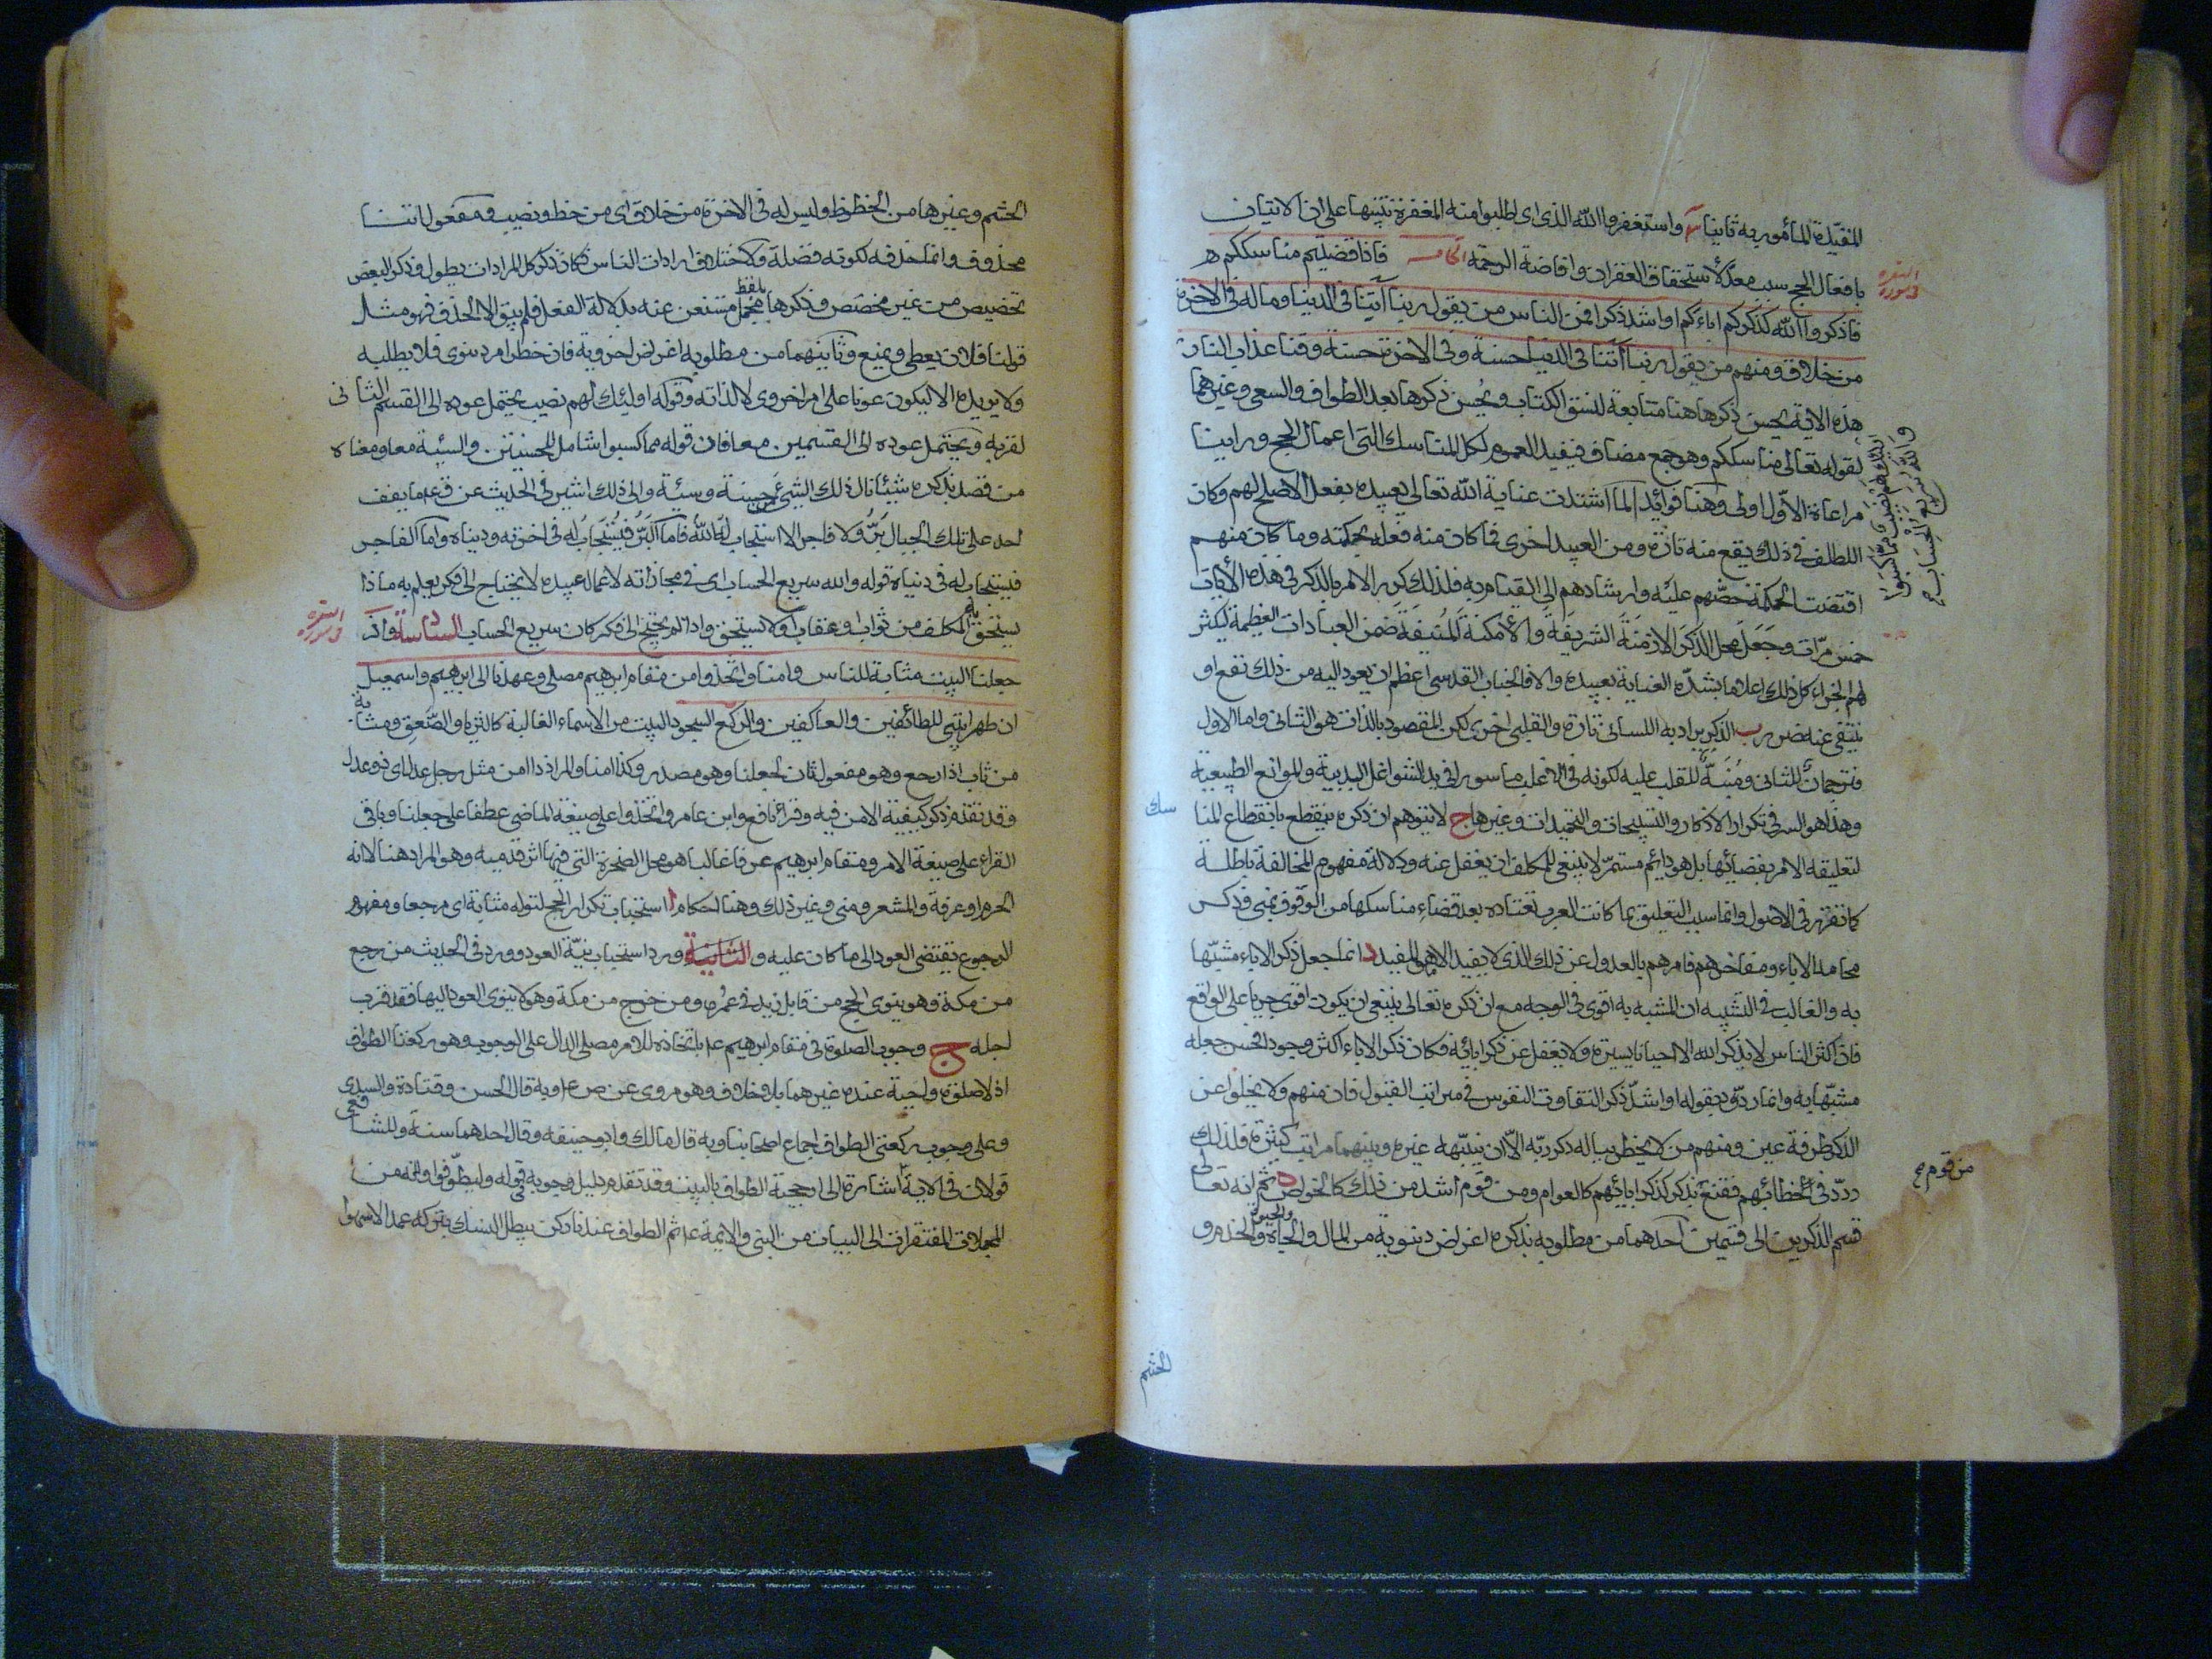 المقيدة المأمور به ثانيا واستغفروا الله الذي اي اطلبوا منه المغفرة تنبيها على ان الاتيان
بافعال الحج سبب معد لاستحقاق الغفران وافاضة الرحمة الخامسة فاذا قضيتم مناسككم
فاذكروا الله كذكركم اباءكم او اشد ذكرا فمن الناس من يقول ربنا آتنا في الدنيا وماله في الاخرة
من خلاق ومنهم من يقول ربنا آتنا في الدنيا حسنة وفي الاخرة حسنة وقنا عذاب النار
هذه الاية يحسن ذكرها هنا متابعة لنسق الكتاب ويحسن ذكرها بعد الطواف والسعي وغيرهما
لقوله تعالى مناسككم وهو جمع مضاف فيفيد العموم لكل المناسك التي اعمال الحج ورأينا
مراعاة الاول اولى وهنا فوائد ا لما اشتدت عناية الله تعالى بعبيده بفعل الاصلح لهم وكان
اللطف في ذلك يقع منه تارة ومن العبيد اخرى فما كان منه فعله بحكمته وما كان منهم
اقتضت الحكمة حضهم عليه وارشادهم الى القيام به فلذلك كرر الامر بالذكر في هذه الايات
خمس مرات وجعل محل الذكر الازمنة الشريفة والامكنة المنيفة ضمن العبادات العظيمة ليكثر
لهم الجزاء كل ذلك اعلاما بشدة العناية بعبيده والا فالجناب القدسي اعظم ان يعود اليه من ذلك نفع او
ينتفي عنه ضرر ب الذكر يراد به اللساني تارة والقلبي اخرى لكن المقصود بالذات هو الثاني واما الاول
فترجمان للثاني ومنبه للقلب عليه لكونه في الاغلب ماسورا في يد الشواغل البدنية والموانع الطبيعية
وهذا هو السر في تكرار الاذكار والتسبيحات والتحميدات وغيرها ج لا يتوهم ان ذكره ينقطع بانقطاع المنا
سك
لتعليقه الامر بقضائها بل هو دايم مستمر لا ينبغي للمكلف ان يغفل عنه ودلالة مفهوم المخالفة باطلة
كما تقرر في الاصول وانما سبب التعليق بما كانت العرب تعتاده بعد قضاء مناسكها من الوقوف بمنى وذكر
محامد الاباء ومفاخرهم فامرهم بالعدول عن ذلك الذي لا يفيد الا المفيد د انما جعل ذكر الاباء مشبها
به والغالب في التشبيه ان المشبه به اقوى في الوجه مع ان ذكره تعالى ينبغي ان يكون اقوى جريا على الواقع
فان اكثر الناس لا يذكر الله الا احيانا يسيرة ولا يغفل عن ذكر ابائه فكان ذكر الاباء اكثر وجودا فحسن جعله
مشبها به وانما ردد بقوله او اشد ذكرا لتفاوت النفوس في مراتب القبول فان منهم ولا يخلو عن
الذكر طرفة عين ومنهم من لا يخطر بباله ذكر ربه الا ان ينبهه غيره وبينهما مراتب كثيرة فلذلك
ردد في خطابهم فقنع بذكر كذكر ابائهم كالعوام ومن قوم اشد من ذلك كالخواص ه ثم انه تعالى
من قوم صح
قسم الذاكرين الى قسمين احدهما من مطلوبه بذكره اغراض دنيوية من المال والجاه والخدم و
الحشم
في سورة البقرة
اولئك لهم نصيب مما كسبوا
والله سريع الحساب صح
الحشم وغيرها من الحظوظ وليس له في الاخرة من خلاق اي من حظ ونصيب ومفعول اتنا
محذوف وانما حذفه لكونه فضلة ولاختلاف ارادات الناس فكان ذكر كل المرادات يطول وذكر البعض
تخصيص من غير مخصص وذكرها بلفظ مجمل مستغن عنه بدلالة الفعل فلم يبق الا الحذف فهو مثل
قولنا فلان يعطي ويمنع وثانيهما من مطلوبه اغراض اخروية فان خطر امر دنيوي فلا يطلبه
ولا يريده الا ليكون عونا على امر اخروي لا لذاته وقوله اولئك لهم نصيب يحتمل عوده الى القسم الثاني
لقربه ويحتمل عوده الى القسمين معا فان قوله مما كسبوا شامل للحسنتين والسيئة معا ومعناه
من قصد بذكره شيئا نال ذلك الشيء حسنة وسيئة والى ذلك اشير في الحديث عن ق ع ما يقف
احد على تلك الجبال بر ولا فاجر الا استجاب له الله فاما البر فيستجاب له في اخرته ودنياه واما الفاجر
فيستجاب له في دنياه قوله والله سريع الحساب اي في مجازاته لاعمال عبيده لا يحتاج الى فكر يعلم به ماذا
يستحق به المكلف من ثواب وعقاب ولا يستحق واذا لم يحتج الى فكر كان سريع الحساب السادسة واذ
في سورة البقرة
جعلنا البيت مثابة للناس وامنا واتخذوا من مقام ابرهيم مصلى وعهدنا الى ابرهيم واسمعيل
ان طهرا بيتي للطائفين والعاكفين والركع السجود البيت من الاسماء الغالبة كالثريا والصعق ومثابة
من ثاب اذا رجع وهو مفعول ثان لجعلنا وهو مصدر وكذا امنا والمراد ذا امن مثل رجل عدل اي ذو عدل
وقد تقدم ذكر كيفية الامن فيه وقرأ نافع وابن عامر واتخذوا على صيغة الماضي عطفا على جعلنا وباقي
القراء على صيغة الامر ومقام ابرهيم عرفا غالبا هو محل الصخرة التي فيها اثر قدميه وهو المراد هنا لا انه
الحرم او عرفة والمشعر ومنى وغير ذلك وهنا احكام ا استحباب تكرار الحج لقوله مثابة اي مرجعا ومفهوم
الرجوع يقتضي العود الى ما كان عليه و الثانية ورد استحباب نية العود وورد في الحديث من رجع
من مكة وهو ينوي الحج من قابل زيد في عمره ومن خرج من مكة وهو لا ينوي العود اليها فقد قرب
اجله ج وجوب الصلوة في مقام ابرهيم ع باتخاذه للامر مصلى الدال على الوجوب وهو ركعتا الطواف
اذ لا صلوة واجبة عنده غيرهما بلا خلاف وهو مروي عن ص ع وبه قال الحسن وقتادة والسدي
وعلى وجوب ركعتي الطواف اجماع اصحابنا وبه قال مالك وابو حنيفة وقال احد هما سنة وللشافعي
قولان في الاية اشارة الى ارجحية الطواف بالبيت وقد تقدم دليل وجوبه في قوله وليطوفوا وانه من
المجملات المفتقرات الى البيان من النبي والايمة ع ثم الطواف عندنا ركن يبطل النسك بتركه عمدا لا سهوا